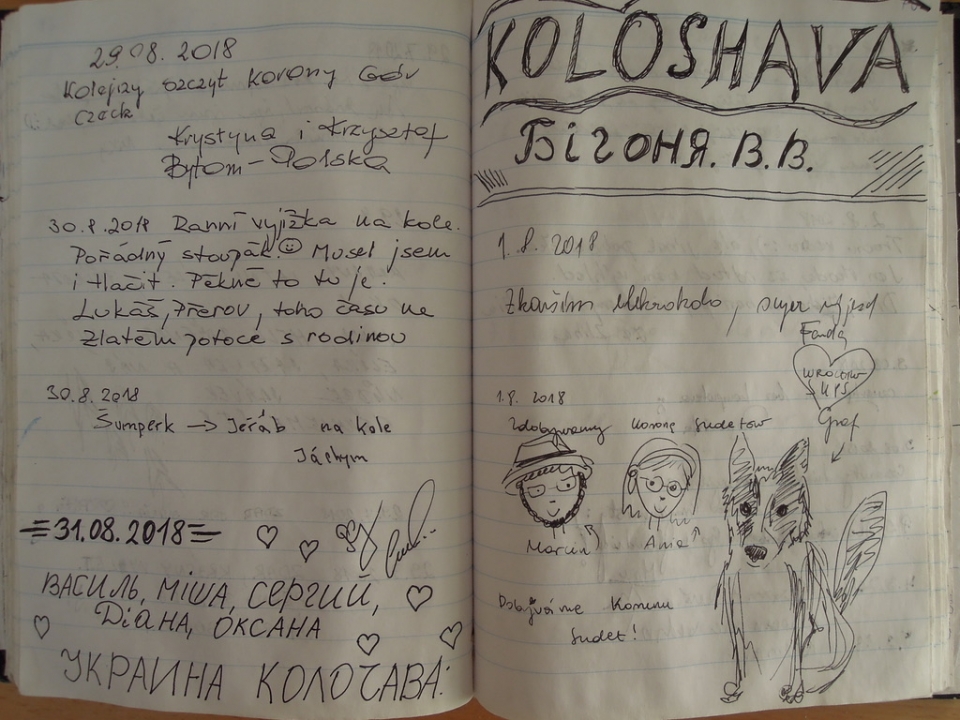 29.08.2018
Kolejny szczyt Korony Gór
Czech
Krystyna i Krzysztof
Bytom - Polska
30.8.2018 Ranní vyjížka na kole.
Pořádný stoupák. Musel jsem
i tlačit. Pěkně to tu je.
Lukáš, Přerov, toho času na
Zlatém potoce s rodinou
30.8.2018
Šumperk → Jeřáb na kole
Jáchym
=31.08.2018=
ВАСИЛЬ, МІША, СЕРГИЙ,
ДІАНА, ОКСАНА
УКРАИНА КОЛОЧАВА:
KOLOSHAVA
БІГОНЯ. В.В.
1.8. 2018
Zkouším elektrokolo, super výjezd
Fanda
1.8. 2018
WROCŁAW
Zdobywamy Koronę Sudetów
Graf
Marcin
Ania
Dobýváme Korunu
Sudet!